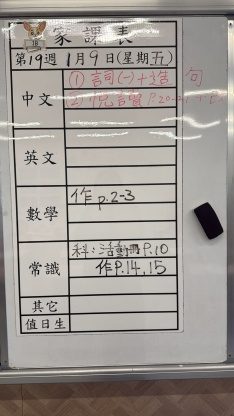 家課表
18
第19週 1月9日(星期五)
中文
① 詞(一)+造句
② 悅言寶 P.20-21
英文
數學
作 p.2-3
常識
科:活動冊P.10
作P.14,15
其它
值日生